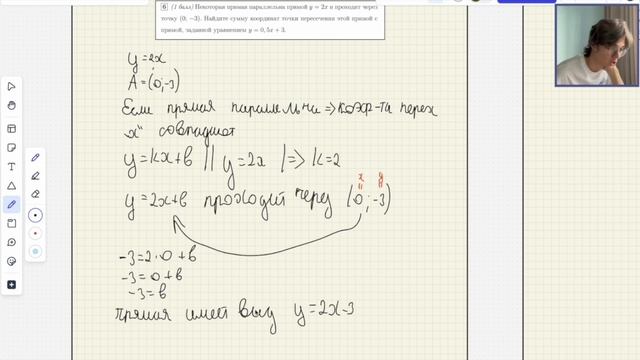 6 (1 балл) Некоторая прямая параллельна прямой y = 2x и проходит через
точку (0; −3). Найдите сумму координат точки пересечения этой прямой с
прямой, заданной уравнением y = 0,5x + 3.
y = 2x
A = (0; -3)
Если прямая параллельна => коэф-та перех
"x" совпадают
y = kx+b || y = 2x |=> k=2
x y
y = 2x+b проходит через (0; -3)
-3=2·0+b
-3=0+b
-3=b
прямая имеет выду y=2x-3